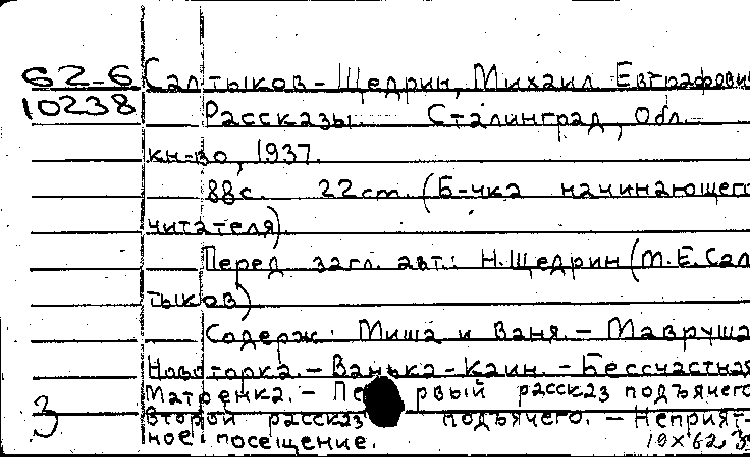 62-6 Салтыков-Щедрин, Михаил Евграфович
10238 Рассказы. Сталинград, Обл.
кн-во, 1937.
88с. 22cm. (Б-чка начинающего
читателя).
Перед загл. авт.: Н.Щедрин (М.Е.Сал
тыков)
Содерж: Миша и Ваня. - Мавруша
Новоторка. - Ванька-Каин. - Бессчастная
Матренка. - Первый рассказ подъячего
Второй рассказ подъячего. - Неприят-
ное посещение.
3